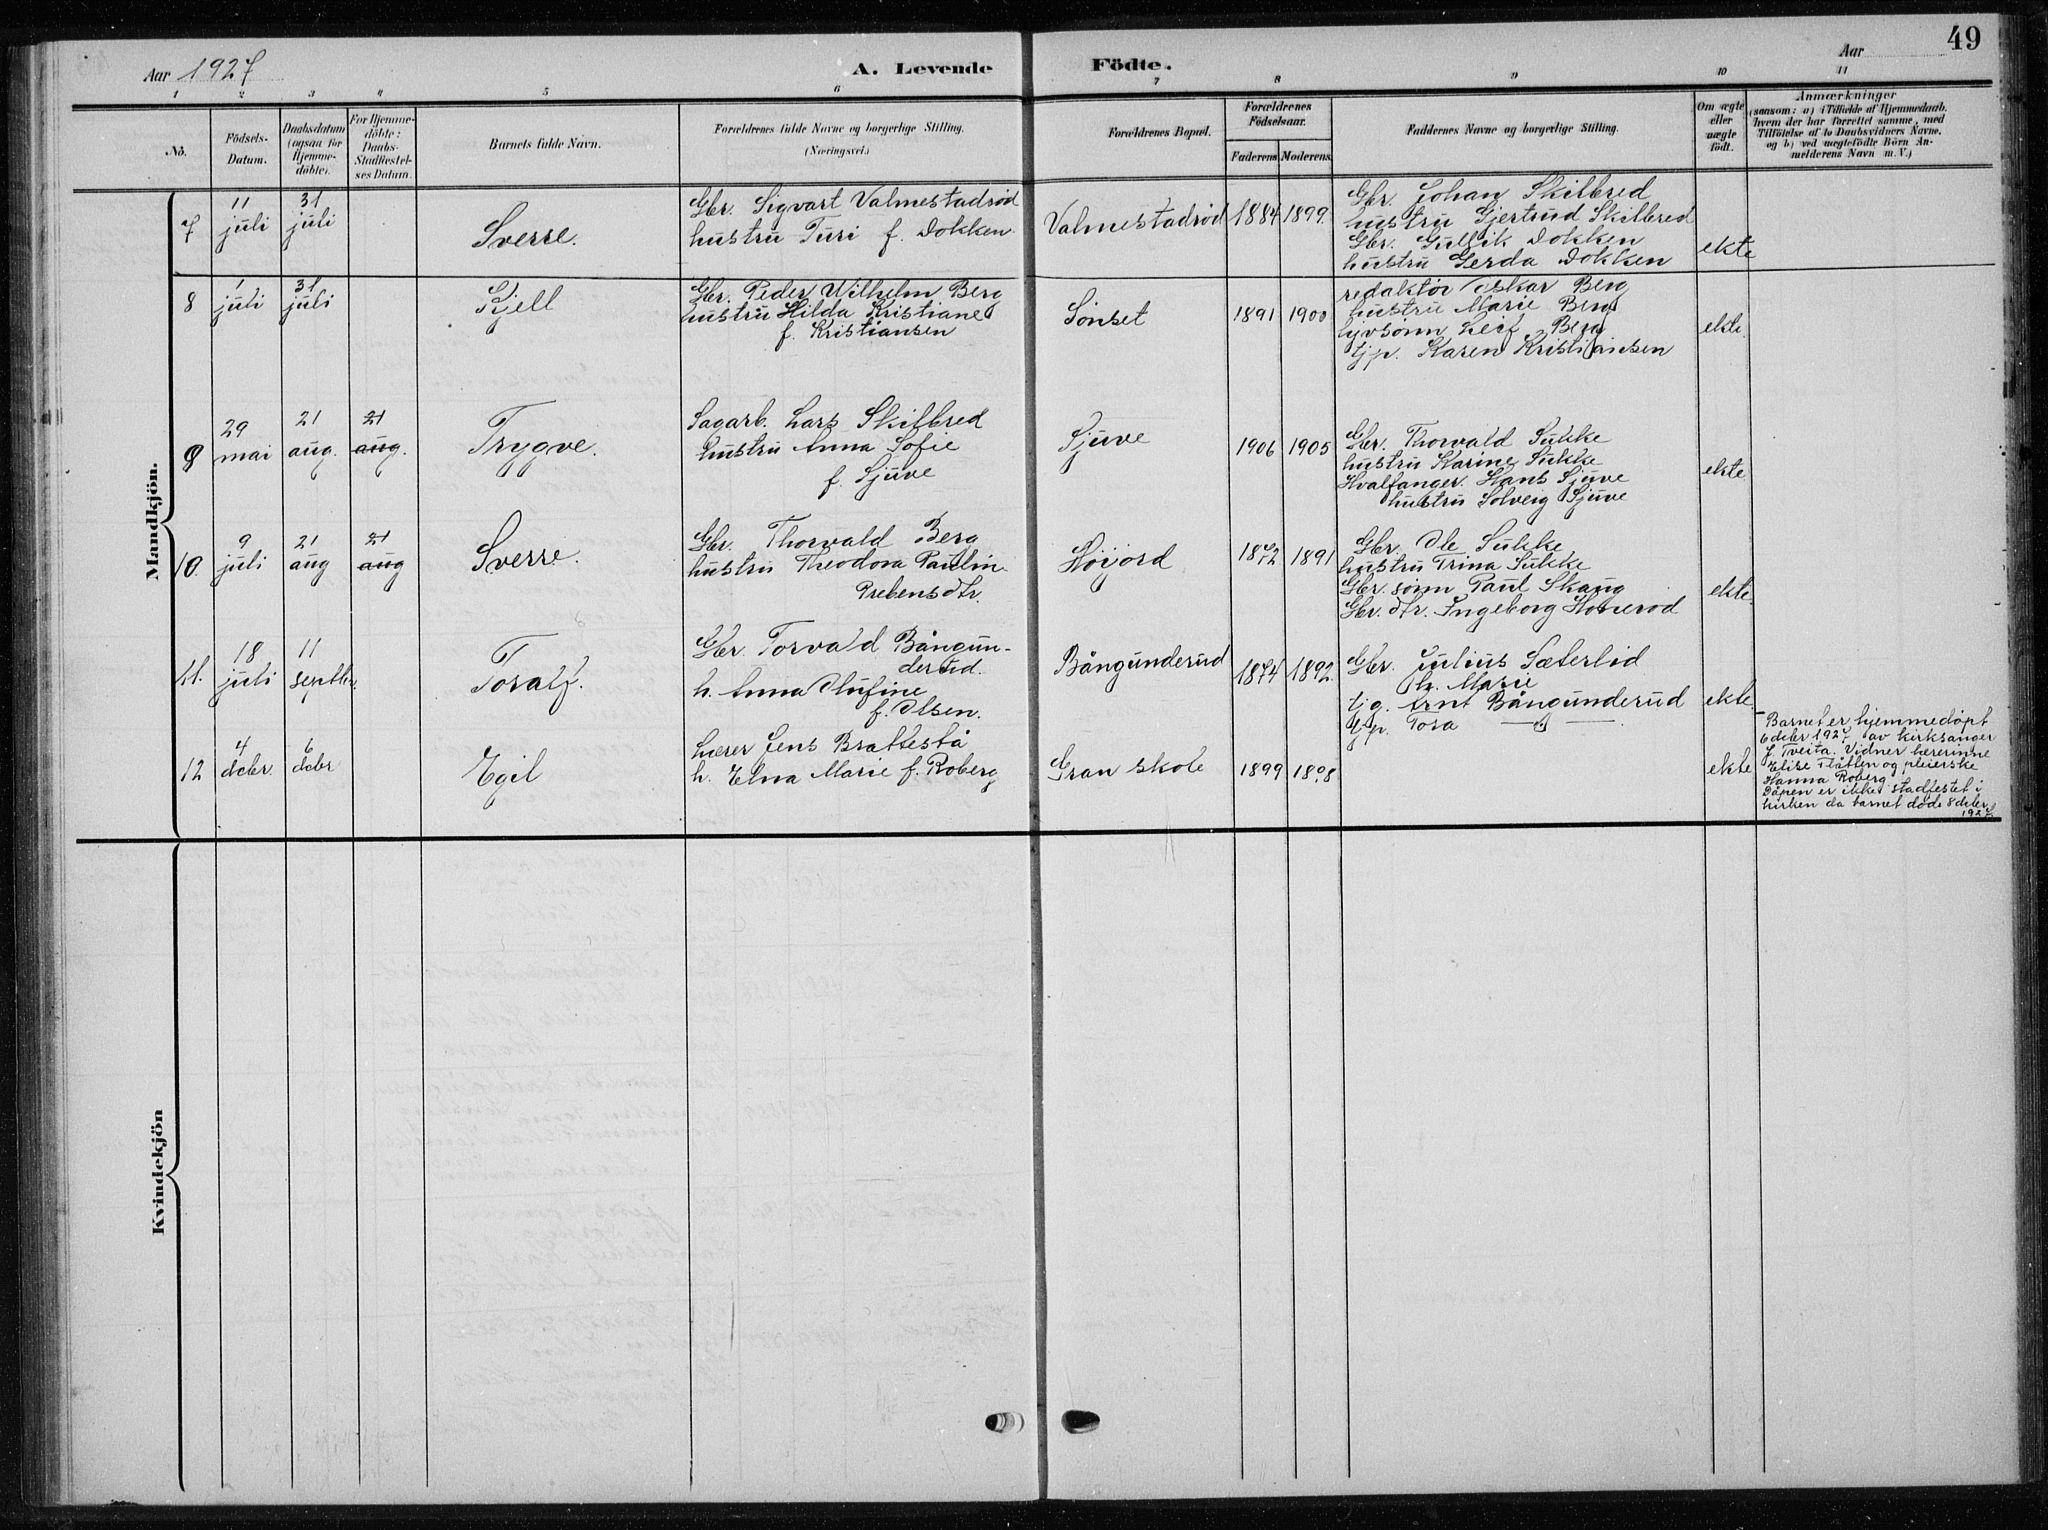 49
Aar 1927
A. Levende
Födte.
Aar
1 2 3 4 5 6 7 8 9 10 11
No.
Födsels-
Datum.
Daabsdatum
(ogsaa for
Hjemme-
döbte).
For Hjemme-
döbte:
Daabs-
Stadfæstel-
ses Datum.
Barnets fulde Navn.
Forældrenes fulde Navne og borgerlige Stilling.
(Næringsvei.)
Forældrenes Bopæl.
Forældrenes
Födselsaar.
Faderens Moderens.
Faddernes Navne og borgerlige Stilling.
Om ægte
eller
uægte
födt.
Anmærkninger
(saasom: a) i Tilfælde af Hjemmedaab.
hvem der har forrettet samme, med
Tilföielse af to Daabsvidners Navne.
og b) ved uægtefödte Börn An-
melderens Navn m. V.)
Mandkjön.
7
11
juli
31
juli
Sverre.
Gbr. Sigvart Valmestadrød
hustru Turi f. Dokken.
Valmestadrød
1884 1899.
Gbr. Johan Skilbred
hustru Gjertrud Skilbred
Gbr. Gullik Dokken
hustru Gerda Dokken
ekte
8
1
juli
31
juli
Kjell
Gbr. Peder Wilhelm Berg
hustru Hilda Kristiane
f. Kristiansen
Sønset
1891 1900
redaktør Oskar Berg
hustru Marie Berg
Leif Berg
tjp. Karen Kristiansen
ekte.
9
29
mai
21
aug.
21
aug.
Trygve.
Sagarb. Lars Skilbred
hustru Anna Sofie
f. Sjuve
Sjuve
1906 1905
Gbr. Thorvald Sukke
hustru Karine Sukke
Hvalfanger. Hans Sjuve
hustru Solverg Sjuve
ekte
10.
9
juli
21
aug
21
aug
Sverre.
Gbr. Thorvald Berg
hustru Theodora Paulin
Prebensdtr.
Høijord
1872 1891
Gbr. Ole Sukke
hustru Trina Sukke
Gbr. sønn Paul Skaug
Gbr. dtr. Ingeborg
ekte.
11.
18
juli
11
septbr.
Toralf.
Gbr. Torvald Bångun-
derud.
h. Anna Olufine
f. Olsen.
Bångunderud
1874 1892.
Gbr. Julius Sæterlid
h. Marie
tjg. Arnt Bångunderud
tjp. Tora —"—
ekte.
12
4
debr.
6
debr
Egil
Lærer Jens Brattestå
h. Elna Marie f. Roberg
Gran skole
1899 1898
ekte
Barnet er hjemmedøpt
6 debr 1927 av kirksanger
J. Tveita. Vidner lærerinne
Elise Flåtten og pleierske
Hanna Roberg
Dåpen er ikke stadfestet i
kirken da barnet døde 8 debr
1927.
Kvindekjön